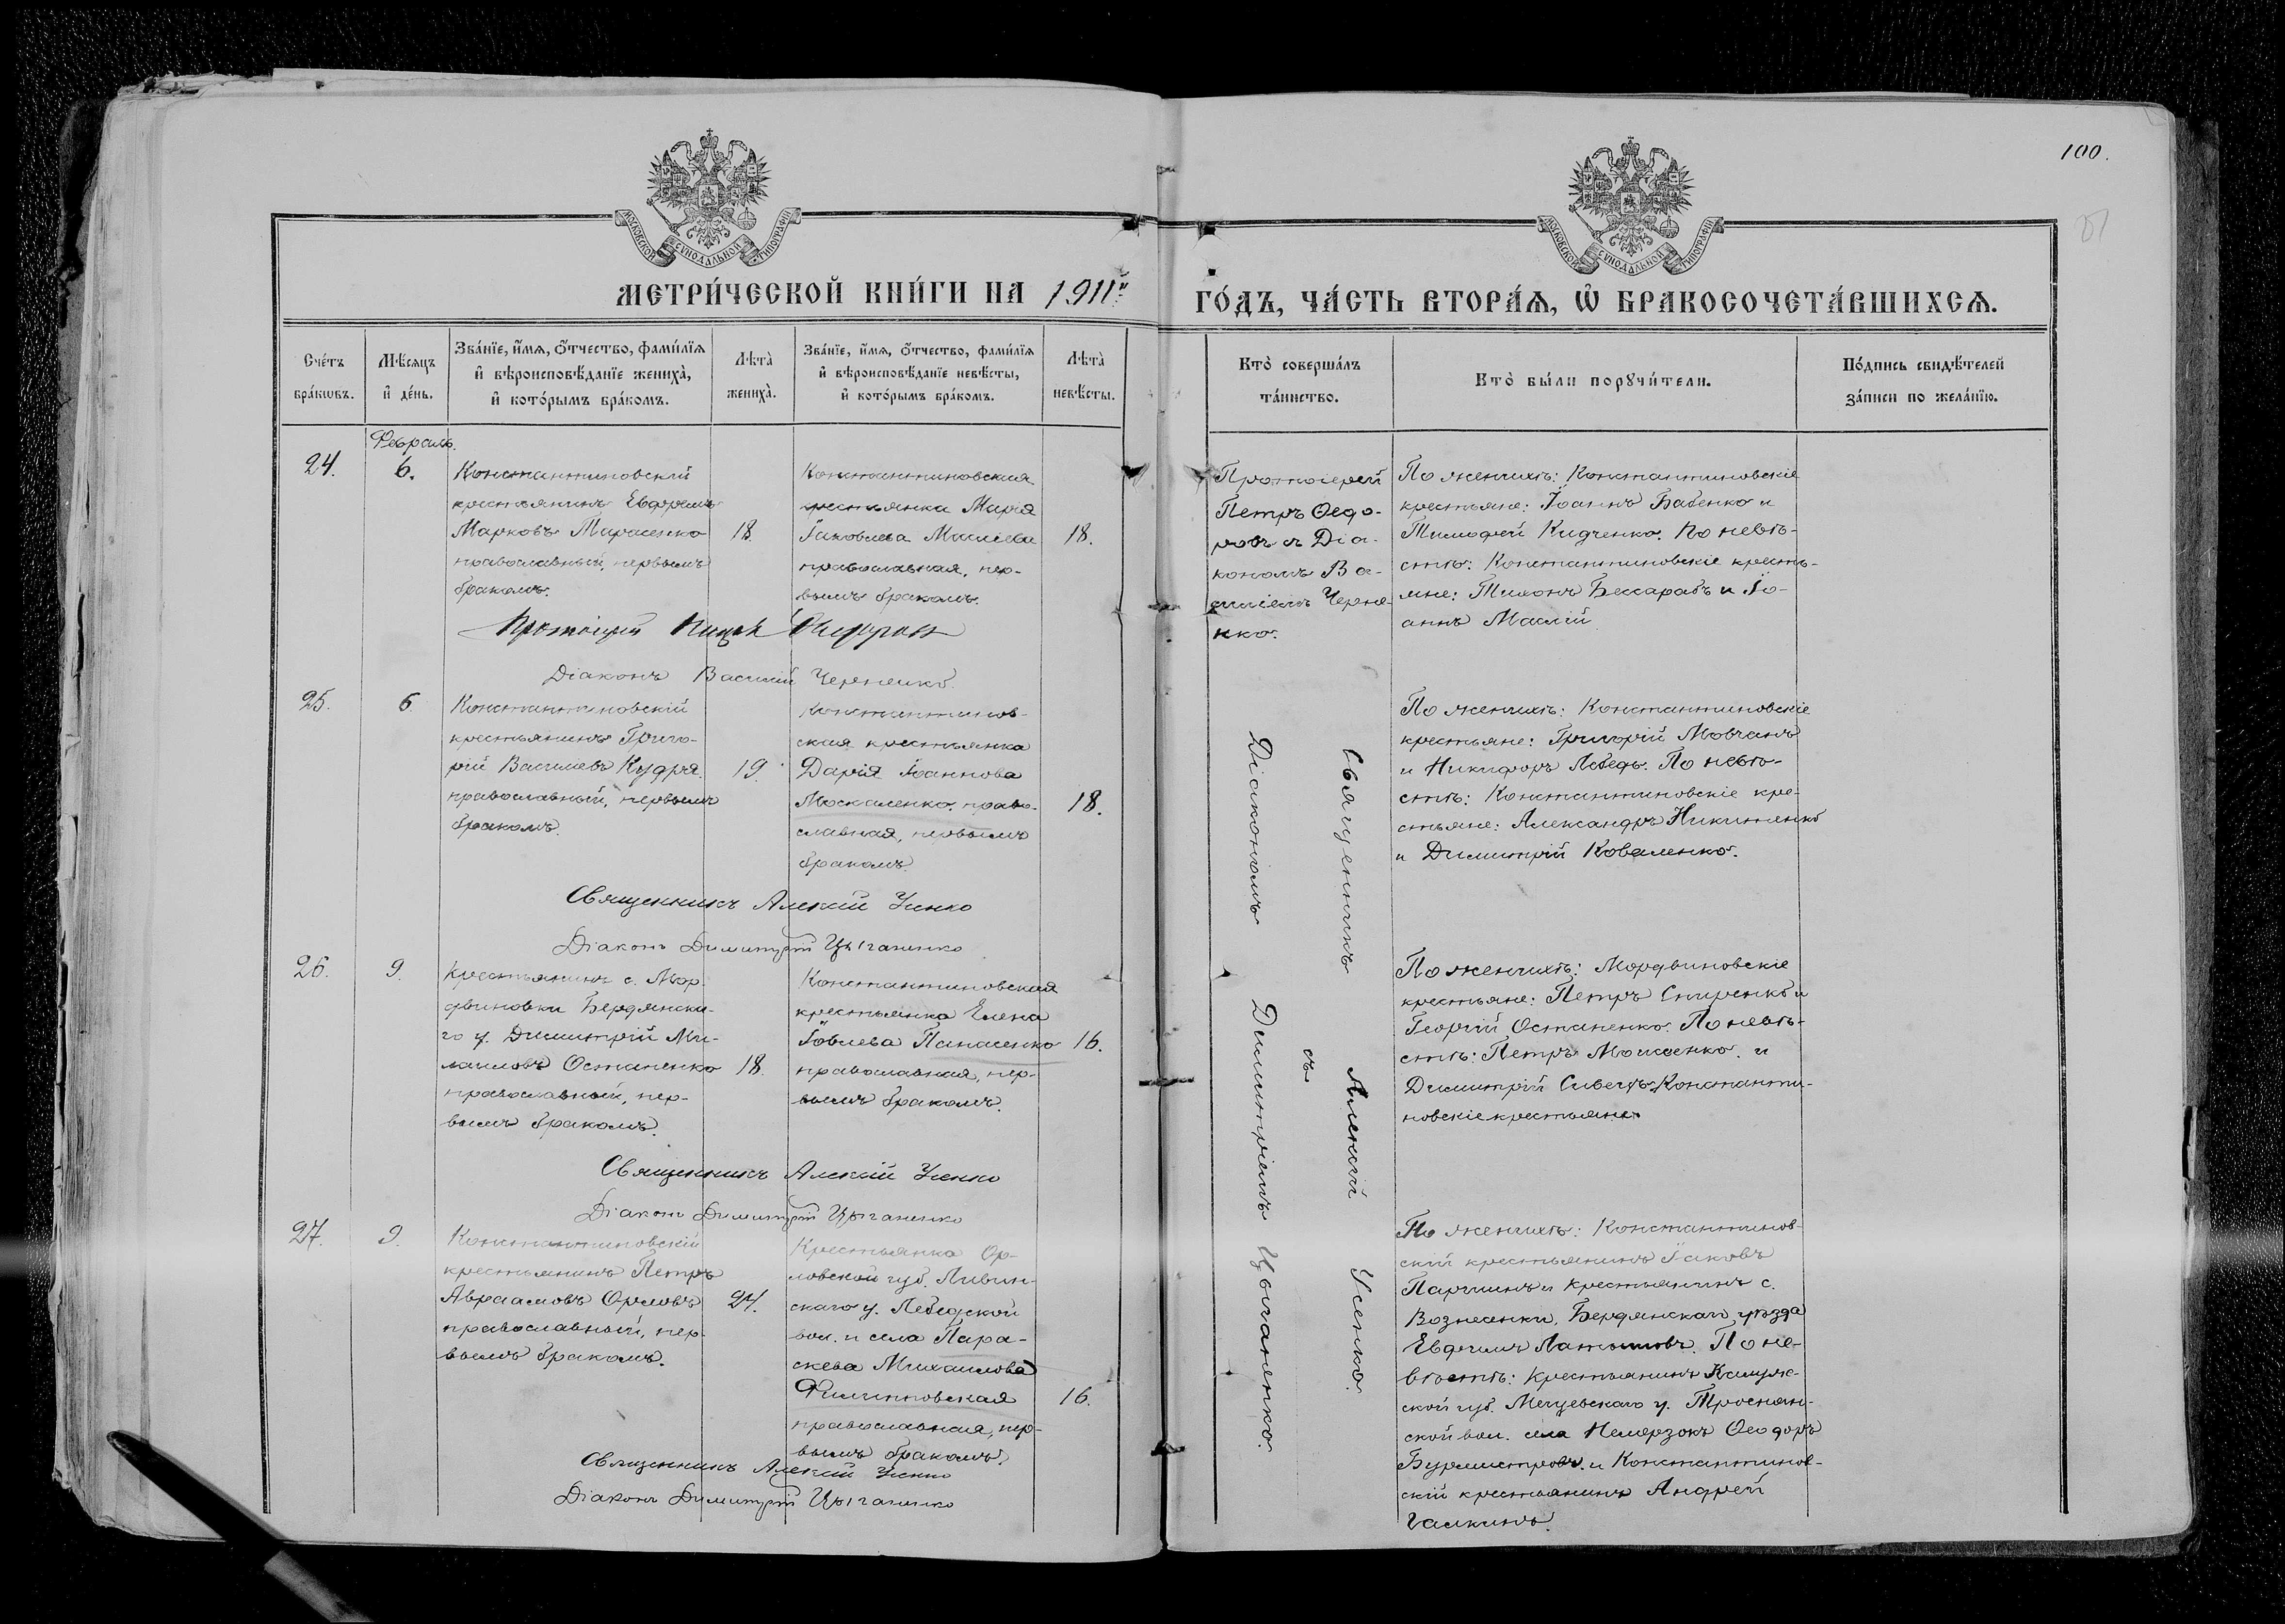 100.
МОСКОВСКОЙ СѴНОДАЛЬНОЙ ТИПОГРАФІИ
МОСКОВСКОЙ СѴНОДАЛЬНОЙ ТИПОГРАФІИ
МЕТРИ́ЧЕСКОЙ КНИ́ГИ НА 1911й
ГО́ДЪ, ЧА́СТЬ ВТОРА́Я, Ѡ БРАКОСОЧЕТА́ВШИХСЯ.
Сче́тъ
бра́кѡвъ.
Мѣ́сяцъ
и҆ де́нь.
Зва́нїе, и҆́мя, ѻ҆́тчество, фами́лїя
и҆ вѣроисповѣ́данїе жениха̀,
и҆ кото́рымъ бра́комъ.
Лѣта̀
жениха̀.
Зва́нїе, и҆́мя, ѻ҆́тчество, фами́лїя
и҆ вѣроисповѣ́данїе невѣ́сты,
и҆ кото́рымъ бра́комъ.
Лѣта̀
невѣ́сты.
Кто̀ соверша́лъ
та́инство.
Кто̀ бы́ли порꙋчи́тели.
По́дпись свидѣ́телей
за́писи по жела́нїю.
Февраль.
24.
6.
Константиновскій
крестьянинъ Ефремъ
Марковъ Марченко
православный, первымъ
бракомъ.
18.
Константиновская
крестьянка Марія
Іаковлева
православная, пер-
вымъ бракомъ.
18.
Протоіерей
Петръ Ѳедо-
ровъ съ Діа-
кономъ Ва-
силіемъ Черне-
нко.
По женихѣ: Константиновскіе
крестьяне: Іоаннъ Бабенко и
Тимофей Кидченко. По невѣ-
стѣ: Константиновскіе кресть-
яне: Тихонъ Бессарабъ и Іо-
аннъ Маслій
Протоіерей Петръ Ѳедоровъ
Діаконъ Василій Черненко.
25.
6
Константиновскій
крестьянинъ Григо-
рій Василіевъ Кудря.
православный, первымъ
бракомъ.
19.
Константинов-
ская крестьянка
Дарія Іоаннова
Москаленко, право-
славная, первымъ
бракомъ.
18.
По женихѣ: Константиновскіе
крестьяне: Григорій Мовчанъ
и Никифоръ Лебедь. По невѣ-
стѣ: Константиновскіе кре-
стьяне: Александръ Никитенко
и Димитрій Коваленко.
Священникъ Алексій Усенко
Діаконъ Димитрій Цыганенко
26.
9.
Крестьянинъ с. Мор-
двиновки Бердянска-
го у. Димитрій Ми-
хаиловъ Остапенко
православный, пер-
вымъ бракомъ.
18.
Константиновская
крестьянка Елена
Іовлева Панасенко
православная, пер-
вымъ бракомъ.
16.
По женихѣ: Мордвиновскіе
крестьяне: Петръ Спиренко и
Георгій Остапенко. По невѣ-
стѣ: Петръ Моисеенко и
Димитрій Сивецъ, Константи-
новскіе крестьяне.
Священникъ Алексій Усенко
Діаконъ Димитрій Цыганенко
27.
9.
Константиновскій
крестьянинъ Петръ
Авраамовъ Орловъ
православный, пер-
вымъ бракомъ.
24.
Крестьянка Ор-
ловской губ. Ливен-
скаго у. Лебедской
вол. и села Пара-
скева Михаилова
Филипповская
православная, пер-
вымъ бракомъ.
16.
По женихѣ: Константинов-
скій крестьянинъ Іаковъ
Паршинъ и крестьянинъ с.
Вознесенки, Бердянскаго уѣзда
Евфимъ Латышовъ. По не-
вѣстѣ: Крестьянинъ Калуж-
ской губ. Мещевскаго у. Троснян-
ской вол. села Немерзокъ Ѳеодоръ
Бурмистровъ и Константинов-
скій крестьянинъ Андрей
Галкинъ.
Священникъ Алексій Усенко
Діаконъ Димитрій Цыганенко
Священникъ Алексій Усенко
съ
Діакономъ Димитріемъ Цыганенко.